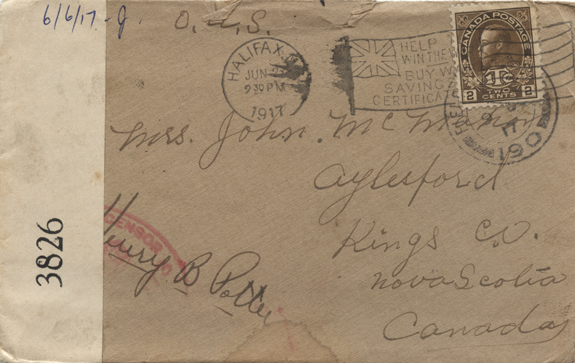 6/6/17.
O. A. S.
HALIFAX
JUN
930 PM
1917
HELP
WIN THE
BUY W
SAVING
CERTIFICA
CANADA POSTAGE
1Tc
2 TWO CENTS 2
Mrs. John.
Aylesford
Kings Co.
Nova Scotia
Canada
CENSOR
Henry B Potter
3826